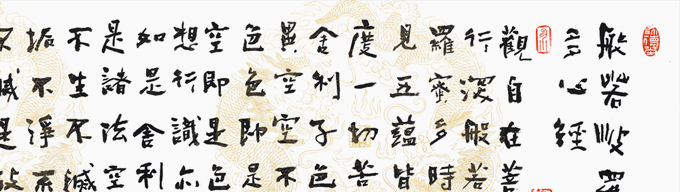 般若波羅
多心經
觀自在菩
行深般若
羅蜜多時
見五蘊皆
度一切苦
舍利子色
異空空不
色色即是
空即是色
想行識亦
如是舍利
是諸法空
不生不滅
垢不淨不
減是故